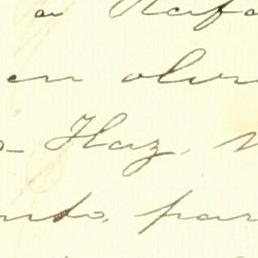 a Rafa
en olvi
- Haz,
ndo, par